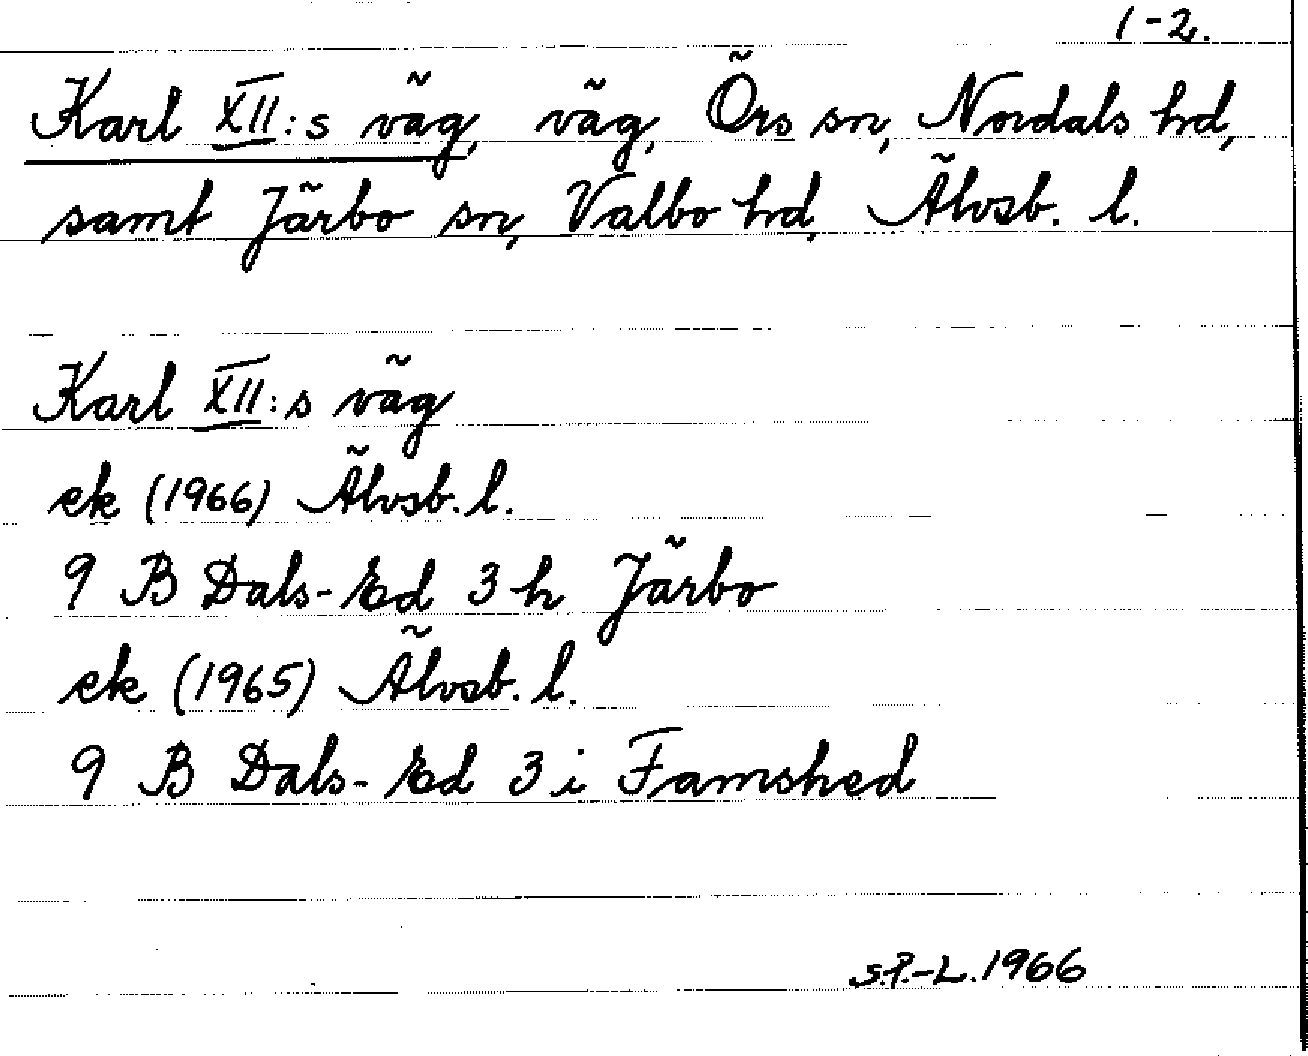 1-2.
Karl XII:s väg, väg, Örs sn, Nordals hd,
samt Järbo sn, Valbo hd, Älvsb. l.
Karl XII:s väg
ek (1966) Älvsb. l.
9 B Dals-Ed 3 h Järbo
ek (1965) Älvsb. l.
9 B Dals-Ed 3 i Famshed
S.P.-L. 1966